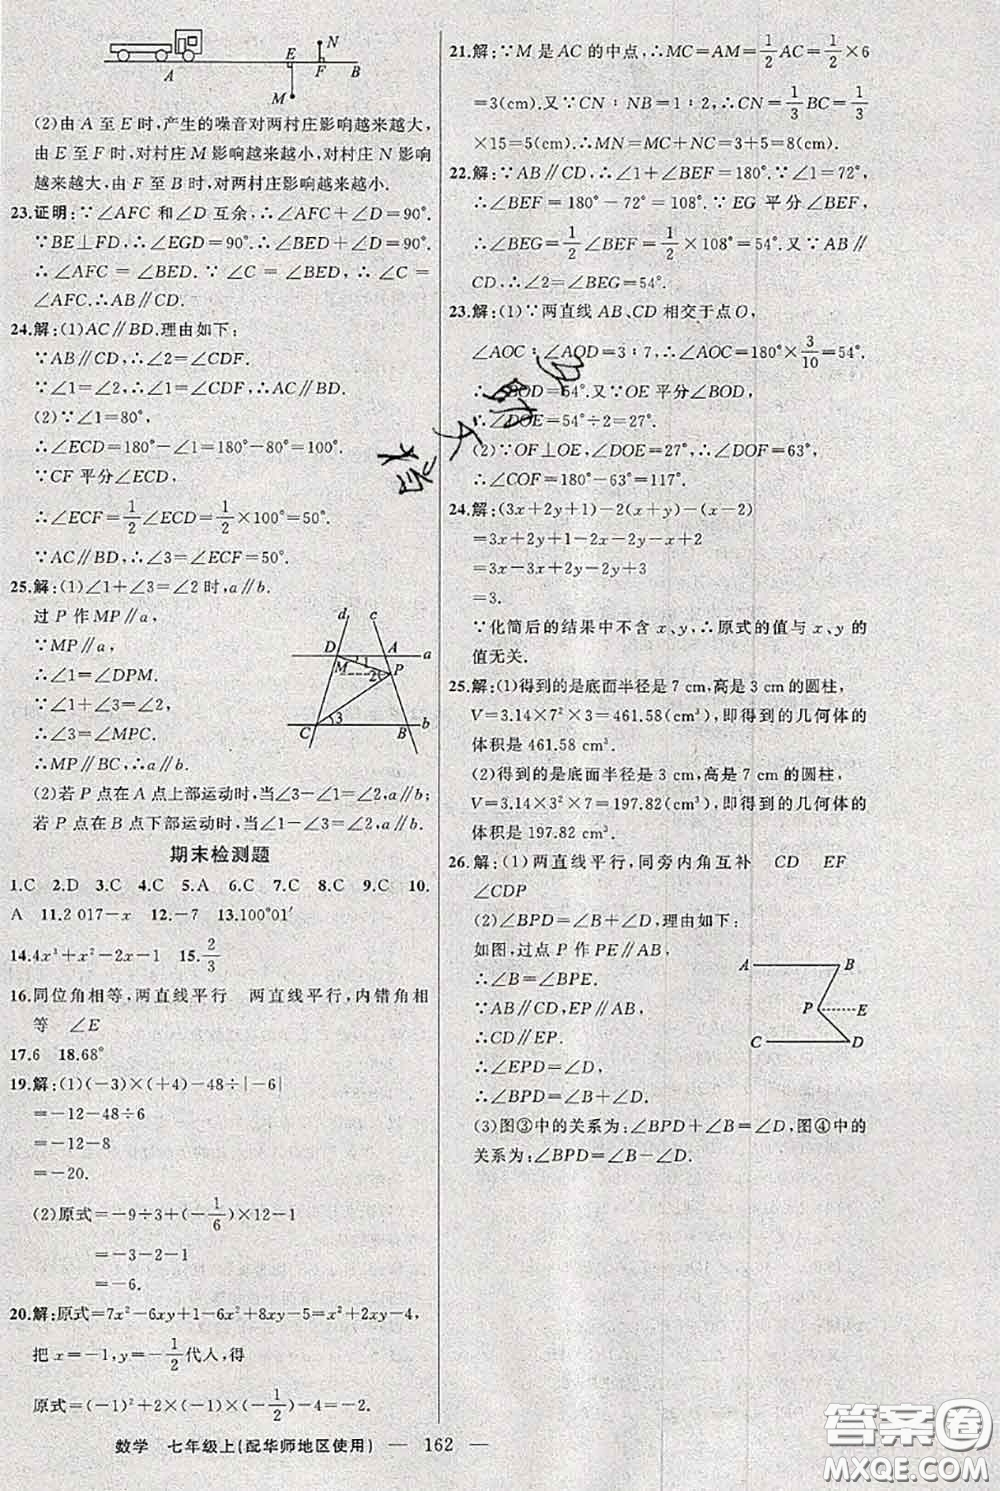 A E N F B M
(2)由 A 至 E 时,产生的噪音对两村庄影响越来越大,
由 E 至 F 时,对村庄 M 影响越来越小,对村庄 N 影响
越来越大,由 F 至 B 时,对两村庄影响越来越小.
23.证明:∵∠AFC 和∠D 互余,∴∠AFC+∠D=90°.
∵BE⊥FD,∴∠EGD=90°.∴∠BED+∠D=90°.
∴∠AFC=∠BED.∵∠C=∠BED,∴∠C=
∠AFC.∴AB∥CD.
24.解:(1)AC∥BD.理由如下:
∵AB∥CD,∴∠2=∠CDF.
∵∠1=∠2,∴∠1=∠CDF,∴AC∥BD.
(2)∵∠1=80°,
∴∠ECD=180°-∠1=180°-80°=100°.
∵CF 平分∠ECD,
∴∠ECF=1/2∠ECD=1/2×100°=50°.
∵AC∥BD,∴∠3=∠ECF=50°.
25.解:(1)∠1+∠3=∠2时,a∥b.
过 P 作 MP∥a,
∵MP∥a,
∴∠1=∠DPM.
∵∠1+∠3=∠2,
∴∠3=∠MPC.
∴MP∥BC,∴a∥b.
d c D A a M 1 P 2 C 3 B b
(2)若 P 点在 A 点上部运动时,当∠3-∠1=∠2,a∥b;
若 P 点在 B 点下部运动时,当∠1-∠3=∠2,a∥b.
期末检测题
1.C 2.D 3.C 4.C 5.A 6.C 7.C 8.C 9.C 10.
A 11.2 017-x 12.-7 13.100°01′
14.4x³+x²-2x-1 15.2/3
16.同位角相等,两直线平行 两直线平行,内错角相
等 ∠E
17.6 18.68°
19.解:(1)(-3)×(+4)-48÷|-6|
=-12-48÷6
=-12-8
=-20.
(2)原式=-9÷3+(-1/6)×12-1
=-3-2-1
=-6.
20.解:原式=7x²-6xy+1-6x²+8xy-5=x²+2xy-4,
把 x=-1,y=-1/2代人,得
原式=(-1)²+2×(-1)×(-1/2)-4=-2.
21.解:∵M 是 AC 的中点,∴MC=AM=1/2AC=1/2×6
=3(cm).又∵CN∶NB=1∶2,∴CN=1/3BC=1/3
×15=5(cm).∴MN=MC+NC=3+5=8(cm).
22.解:∵AB∥CD,∴∠1+∠BEF=180°.∵∠1=72°,
∴∠BEF=180°-72°=108°.∵EG 平分∠BEF,
∴∠BEG=1/2∠BEF=1/2×108°=54°.又∵AB∥
CD,∴∠2=∠BEG=54°.
23.解:(1)∵两直线 AB、CD 相交于点O,
∠AOC∶∠AOD=3∶7,∴∠AOC=180°×3/10=54°.
∴∠BOD=54°.又∵OE 平分∠BOD,
∴∠DOE=54°÷2=27°.
(2)∵OF⊥OE,∠DOE=27°,∴∠DOF=63°,
∴∠COF=180°-63°=117°.
24.解:(3x+2y+1)-2(x+y)-(x-2)
=3x+2y+1-2x-2y-x+2
=3x-3x+2y-2y+3
=3.
∵化简后的结果中不含 x、y,∴原式的值与 x、y 的
值无关.
25.解:(1)得到的是底面半径是 7 cm,高是 3 cm的圆柱,
V=3.14×7²×3=461.58(cm³),即得到的几何体的
体积是 461.58 cm³.
(2)得到的是底面半径是 3 cm,高是 7 cm的圆柱,
V=3.14×3²×7=197.82(cm³),即得到的几何体的
体积是 197.82 cm³.
26.解:(1)两直线平行,同旁内角互补 CD EF
∠CDP
(2)∠BPD=∠B+∠D,理由如下:
如图,过点 P 作 PE∥AB,
∴∠B=∠BPE.
∵AB∥CD,AB∥PE,
∴CD∥EP.
∴∠EPD=∠D.
∴∠BPD=∠B+∠D.
A B P E C D
(3)图③中的关系为:∠BPD+∠B=∠D,图④中的
关系为:∠BPD=∠B-∠D.
数学 七年级上(配华师地区使用) — 162 —
答案圈
MXQE.COM